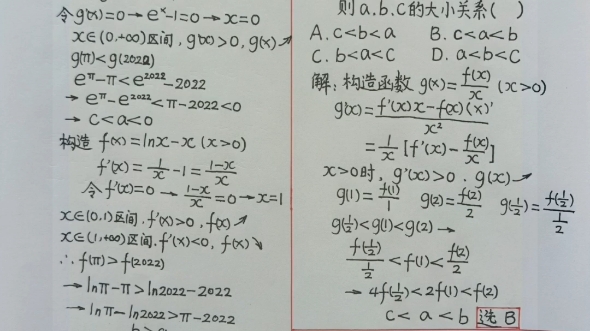 令g'(x)=0→eˣ-1=0→x=0
x∈(0,+∞)区间,g'(x)>0,g(x)↗
g(π)<g(2022)
e^π-π<e^2022-2022
→e^π-e^2022<π-2022<0
→c<a<0
构造 f(x)=lnx-x(x>0)
f'(x)=1/x-1=(1-x)/x
令f'(x)=0→(1-x)/x=0→x=1
x∈(0,1)区间.f'(x)>0,f(x)↗
x∈(1,+∞)区间.f'(x)<0,f(x)↘
∴f(π)>f(2022)
→lnπ-π>ln2022-2022
→lnπ-ln2022>π-2022
则a.b.c的大小关系( )
A.c<b<a B.c<a<b
C.b<a<c D.a<b<c
解:构造函数 g(x)=f(x)/x (x>0)
g'(x)=(f'(x)x-f(x)(x)')/x²
=1/x[f'(x)-f(x)/x]
x>0时,g'(x)>0.g(x)↗
g(1)=f(1)/1 g(2)=f(2)/2 g(1/2)=f(1/2)/(1/2)
g(1/2)<g(1)<g(2)→
f(1/2)/(1/2)<f(1)<f(2)/2
→4f(1/2)<2f(1)<f(2)
c<a<b 选B